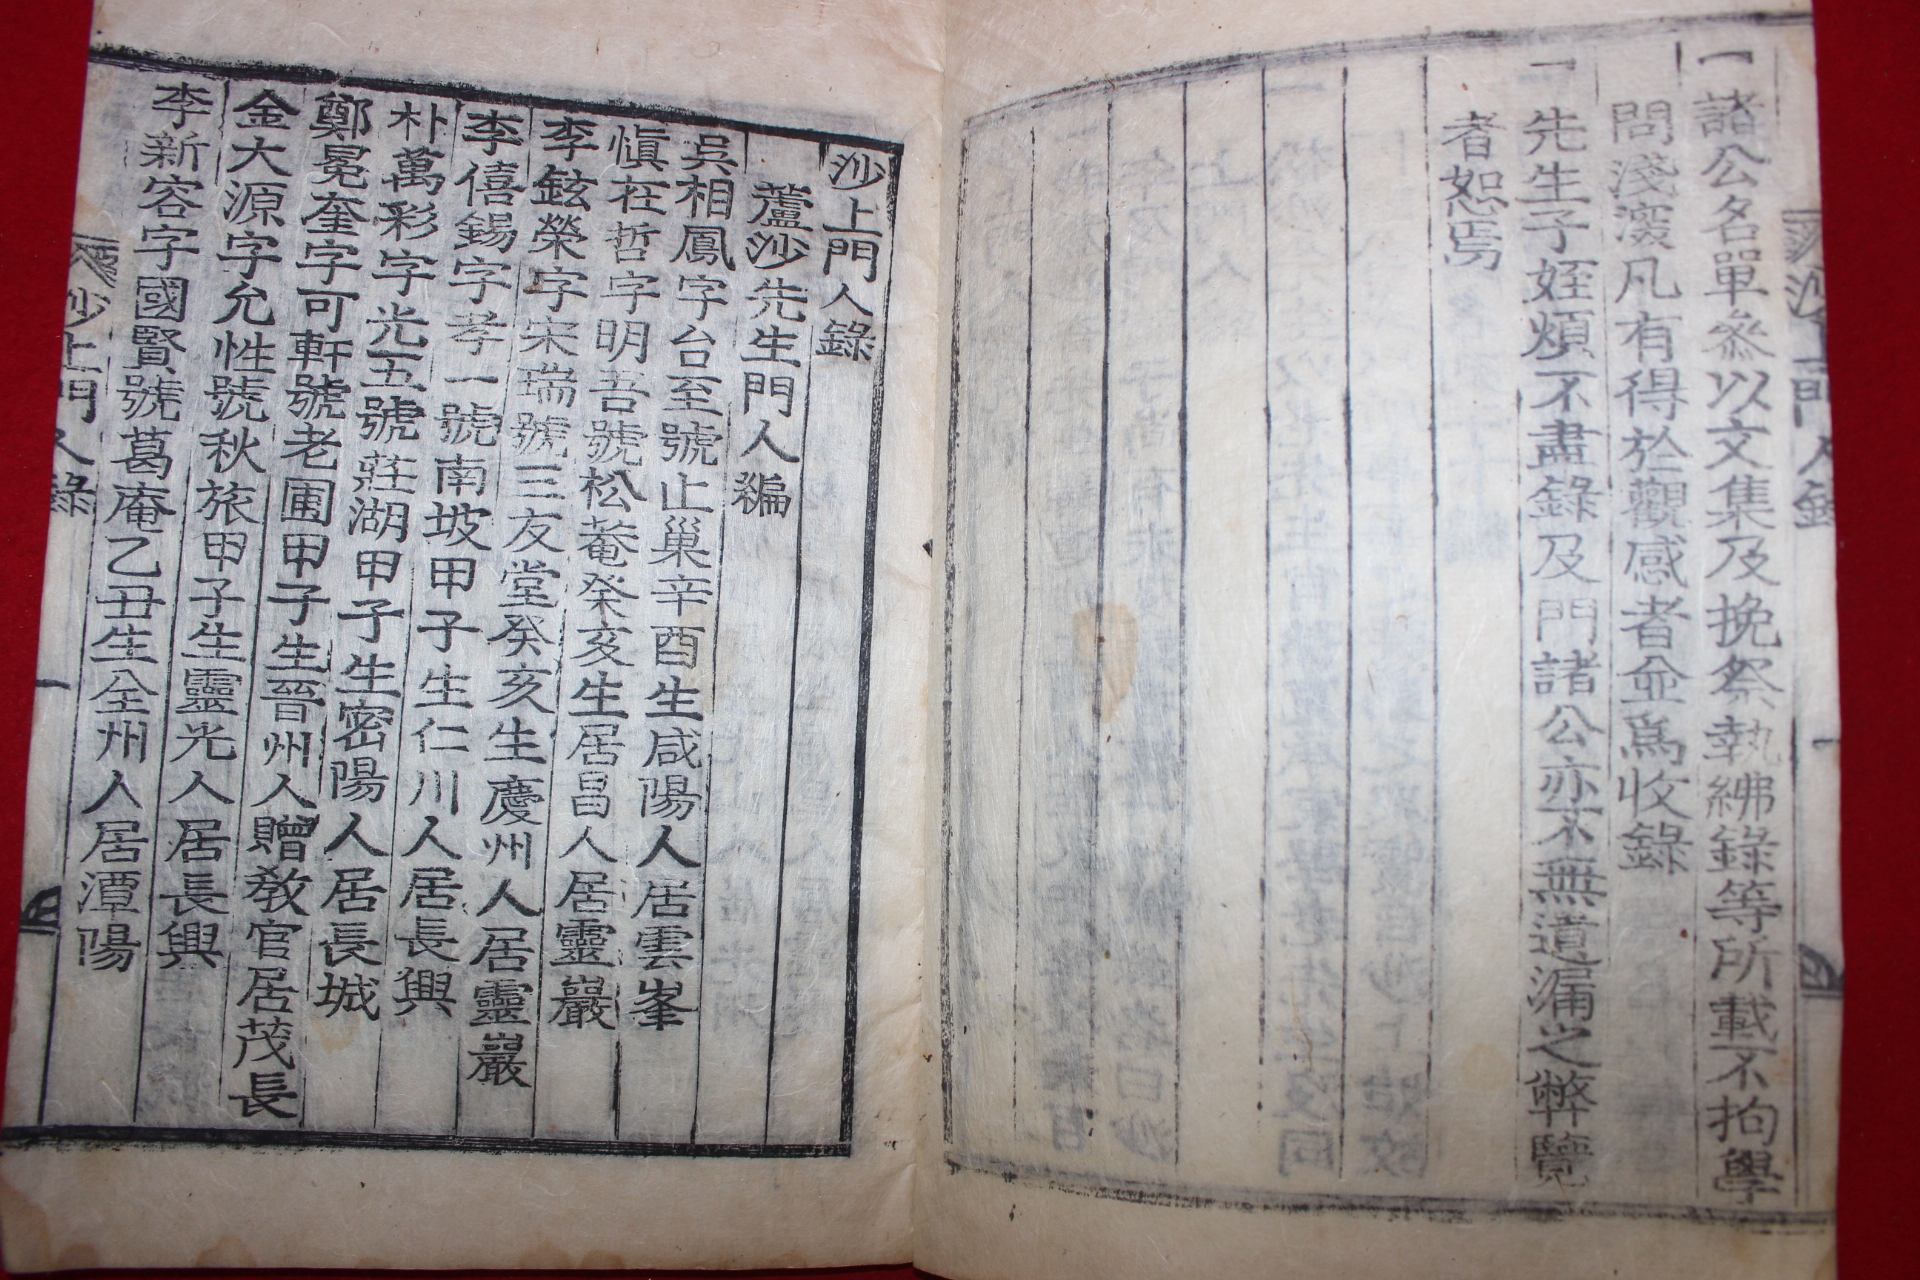 一諸公名單叅以文集及挽祭執紼錄等所載不拘學
問淺深凡有得於觀感者並爲收錄
一先生子姪煩不盡錄及門諸公亦不無遺漏之弊覽
者恕焉
沙上門人錄
蘆沙先生門人編
吳相鳳字台至號止巢辛酉生咸陽人居雲峯
愼在哲字明吾號松菴癸亥生居昌人居靈巖
李鉉榮字宋瑞號三友堂癸亥生慶州人居靈巖
李僖錫字孝一號南坡甲子生仁川人居長興
朴萬彩字光五號莊湖甲子生密陽人居長城
鄭冕奎字可軒號老圃甲子生晉州人贈敎官居茂長
金大源字允性號秋旅甲子生靈光人居長興
李新容字國賢號葛庵乙丑生全州人居潭陽
沙上門人錄
一